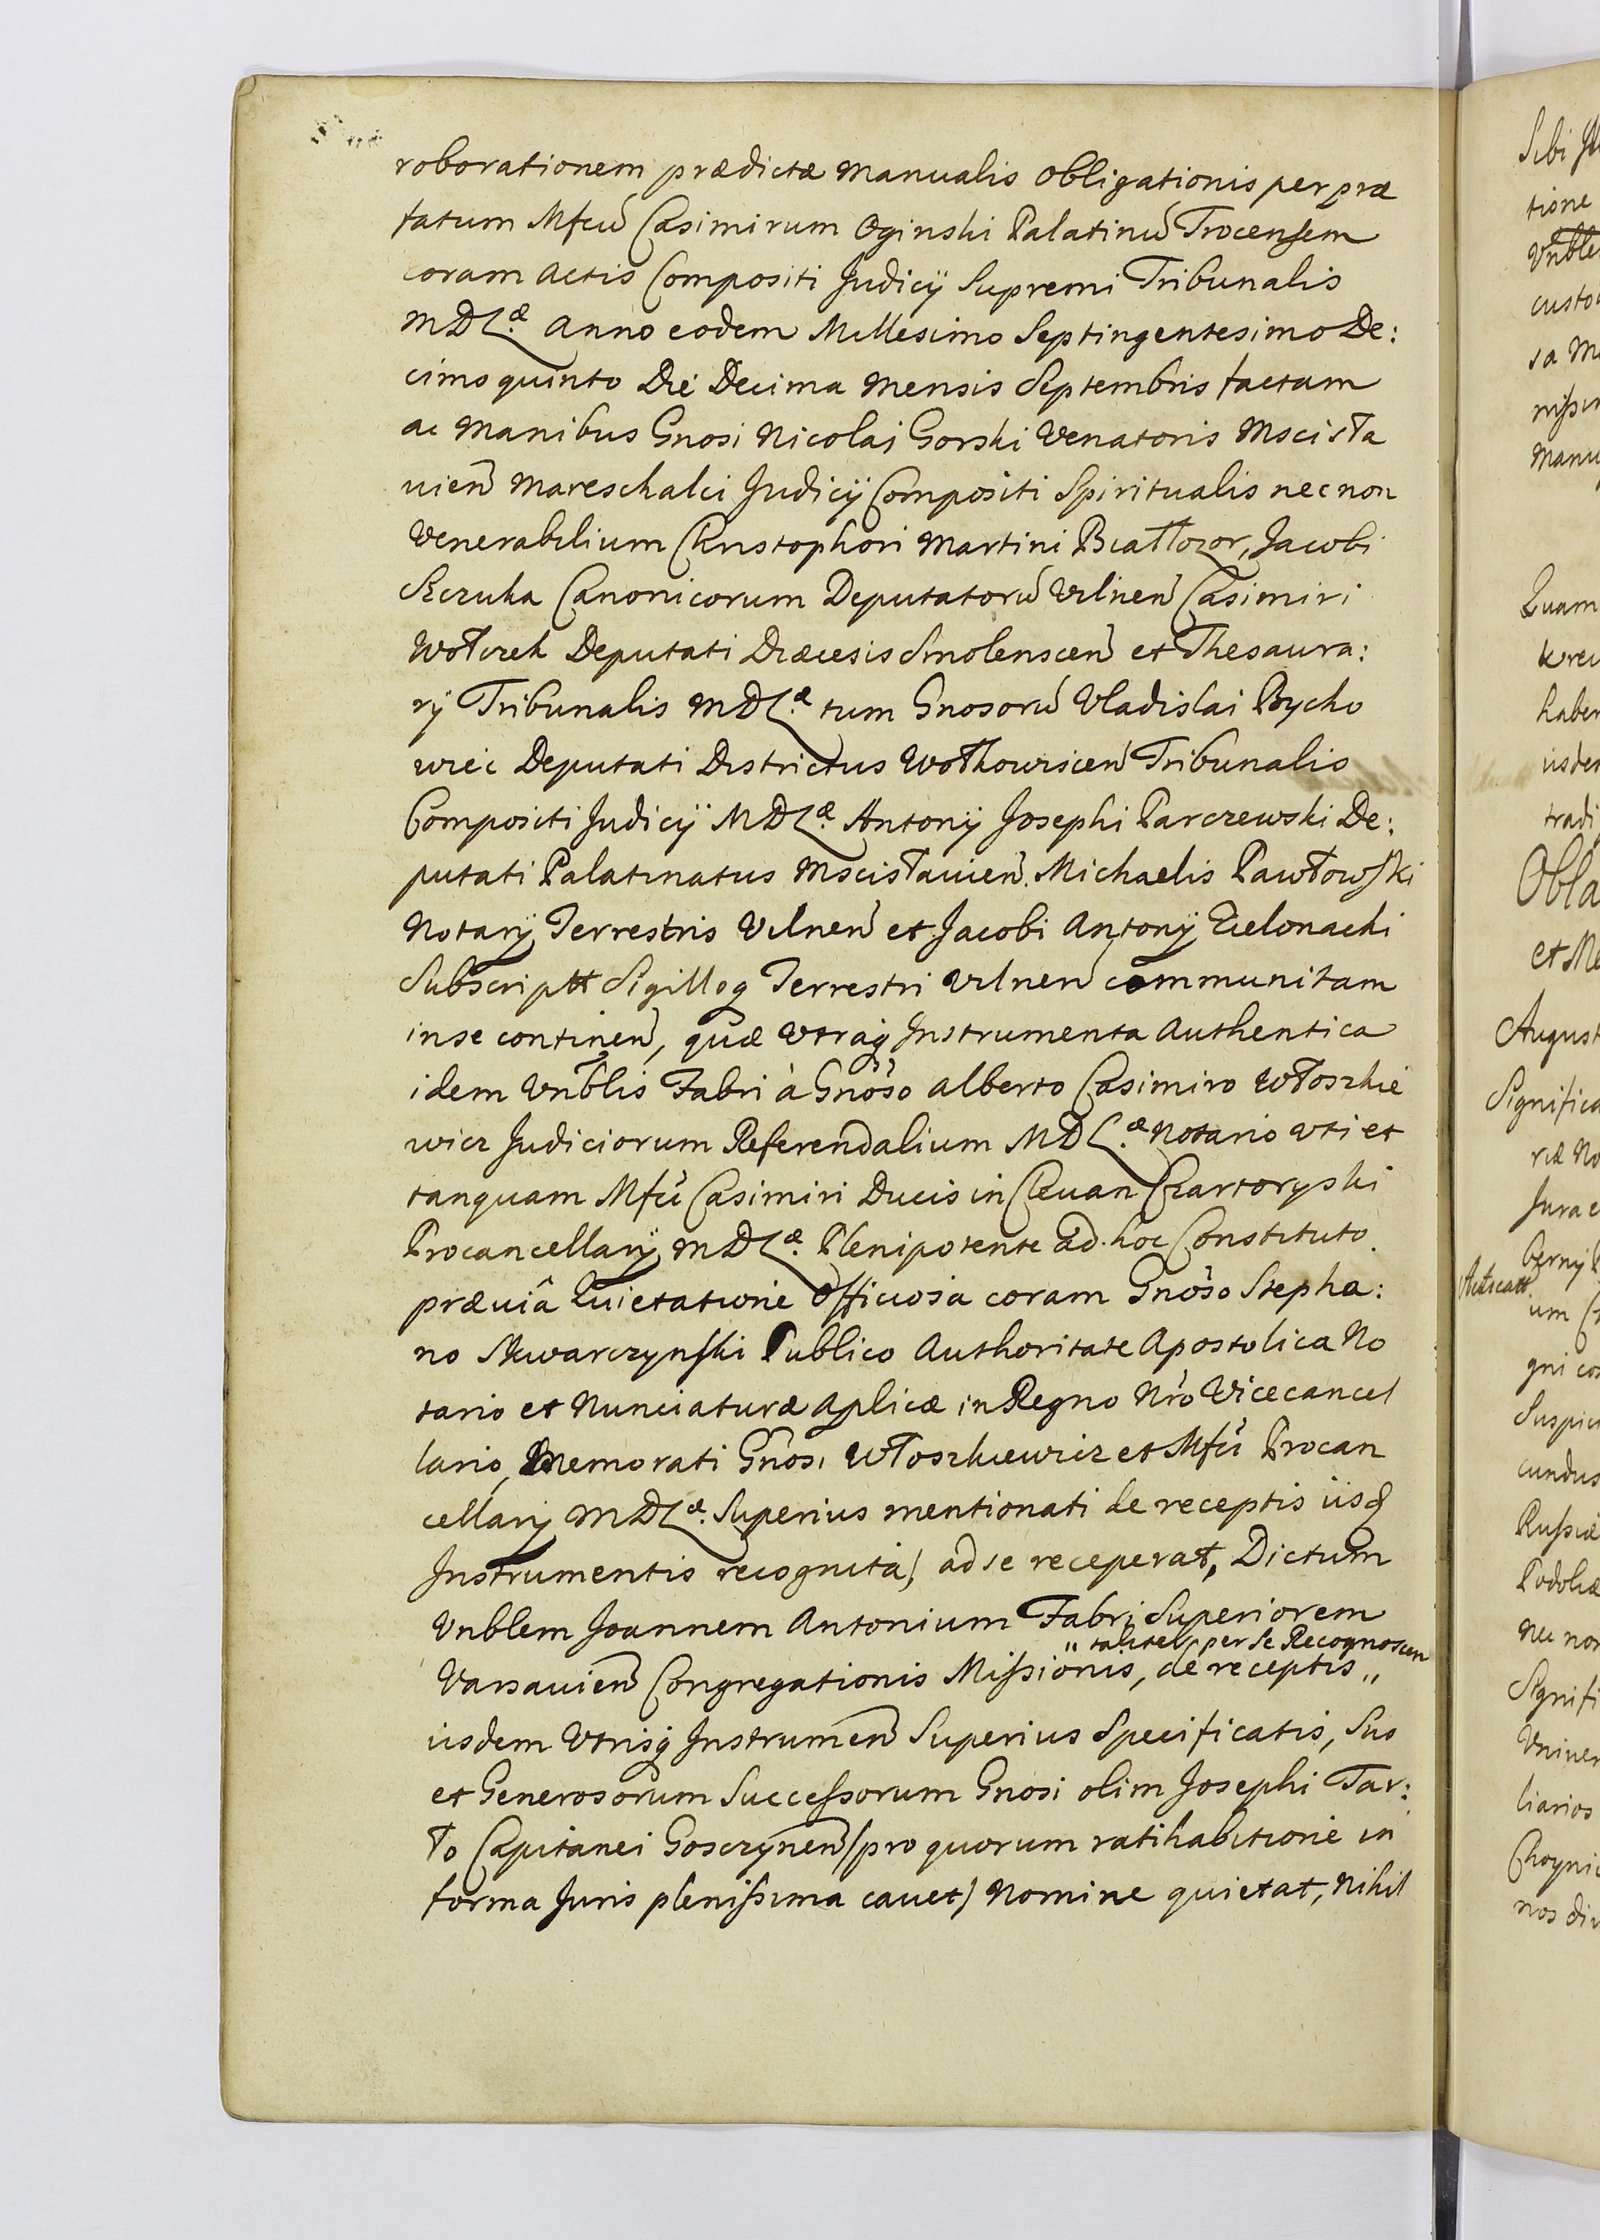 roborationem prædictæ Manualis Obligationis per præ
fatum Mfcũ Casimirum Oginski Palatinũ Trocensem
coram Actis Compositi Judicÿ Supremi Tribunalis
MDLæ. Anno eodem Millesimo Septingentesimo De:
cimo quinto Die Decima Mensis Septembris factam
ac Manibus Gnosi Nicolai Gorski Venatoris Mscisła
uien̄ Mareschalci Judicÿ Compositi Spiritualis nec non
Venerabilium Christophori Martini Białłozor, Jacobi
Szczuka Canonicorum Deputatorũ Vilnen̄ Casimiri
Wołczek Deputati Diæcesis Smolenscen̄ et Thesaura:
rÿ Tribunalis MDLæ. tum Gnosorũ Vladislai Bycho
wiec Deputati Districtus Wołkowiscen̄ Tribunalis
Compositi Judicÿ MDLæ. Antonÿ Josephi Parczewski De:
putati Palatinatus Mscisłauien̄. Michaelis Pawłowski
Notarÿ Terrestris Vilnen̄ et Jacobi Antonÿ Zielonacki
Subscriptt Sigilloq Terrestri Vilnen̄ communitam
in se continen̄, quæ vtraq̃ Instrumenta Authentica
idem Vnb̃lis Fabri à Gnõso Alberto Casimiro Włoszkie
wicz Judiciorum Referendalium MDLæ. Notario vti et
tanquam Mfci Casimiri Ducis in Cleuan Czartoryski
Procancellarÿ MDLæ. Plenipotente ad hoc Constituto.
præuiâ Quietatione Officiosa coram Gnõso Stepha:
no Skwarczynski Publico Authoritate Apostolica No
tario et Nunciaturæ Aplicæ in Regno Nr̃o Vicecancel
lario, Memorati Gnõsi Włoszkiewicz et Mfci Procan
cellarÿ MDLæ. Superius mentionati de receptis iisq̃
Instrumentis recognita) ad se receperat, Dictum
Vnblem Joannem Antonium Fabri Superiorem
" taliter per se Recognoscen
Varsauien̄ Congregationis Missionis, de receptis "
iisdem Vtrisq̃ Instrumen̄ Superius Specificatis, Suo
et Generosorum Successorum Gnosi olim Josephi Tar:
ło Capitanei Gosczynen̄ (pro quorum ratihabitione in
forma Juris plenissima cauet) Nomine quietat, Nihil
Sibi
tione
Vnble
custo
sa M
nissim
Manu
Quam
haben
iisdem
tradi
Obla
et Me
August
Significa
riæ No
Jura e
um
gni cos
Suspici
cundus
Russiæ
Podoliæ
Nec non
Signifi
Vniver
liarios
nos di